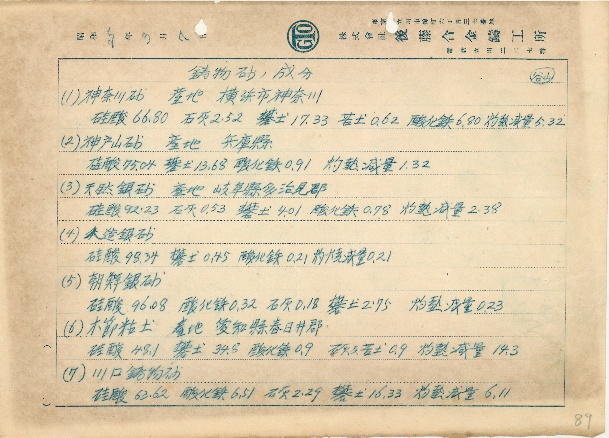 昭和25年3月7日
GIO
株式會社 後藤合金鑄工所
鋳物砂ノ成分
(1) 神奈川砂 産地 横浜市神奈川
硅酸 66.80 石灰 2.52 礬土 17.33 苦土 0.62 酸化鉄 6.80 灼熱減量 5.32
(2) 神戸山砂 産地 兵庫縣
硅酸 75.04 礬土 13.68 酸化鉄 0.91 灼熱減量 1.32
(3) 天然銀砂 産地 岐阜縣多治見郡
硅酸 92.23 石灰 0.53 礬土 4.01 酸化鉄 0.78 灼熱減量 2.38
(4) 人造銀砂
硅酸 98.34 礬土 0.45 酸化鉄 0.21 灼熱減量 0.21
(5) 朝鮮銀砂
硅酸 96.08 酸化鉄 0.32 石灰 0.18 礬土 2.75 灼熱減量 0.23
(6) 木節粘土 産地 愛知縣春日井郡
硅酸 48.1 礬土 34.8 酸化鉄 0.9 苦土 0.9 灼熱減量 14.3
(7) 川口鋳物砂
硅酸 63.62 酸化鉄 6.51 石灰 2.29 礬土 16.33 灼熱減量 6.11
89